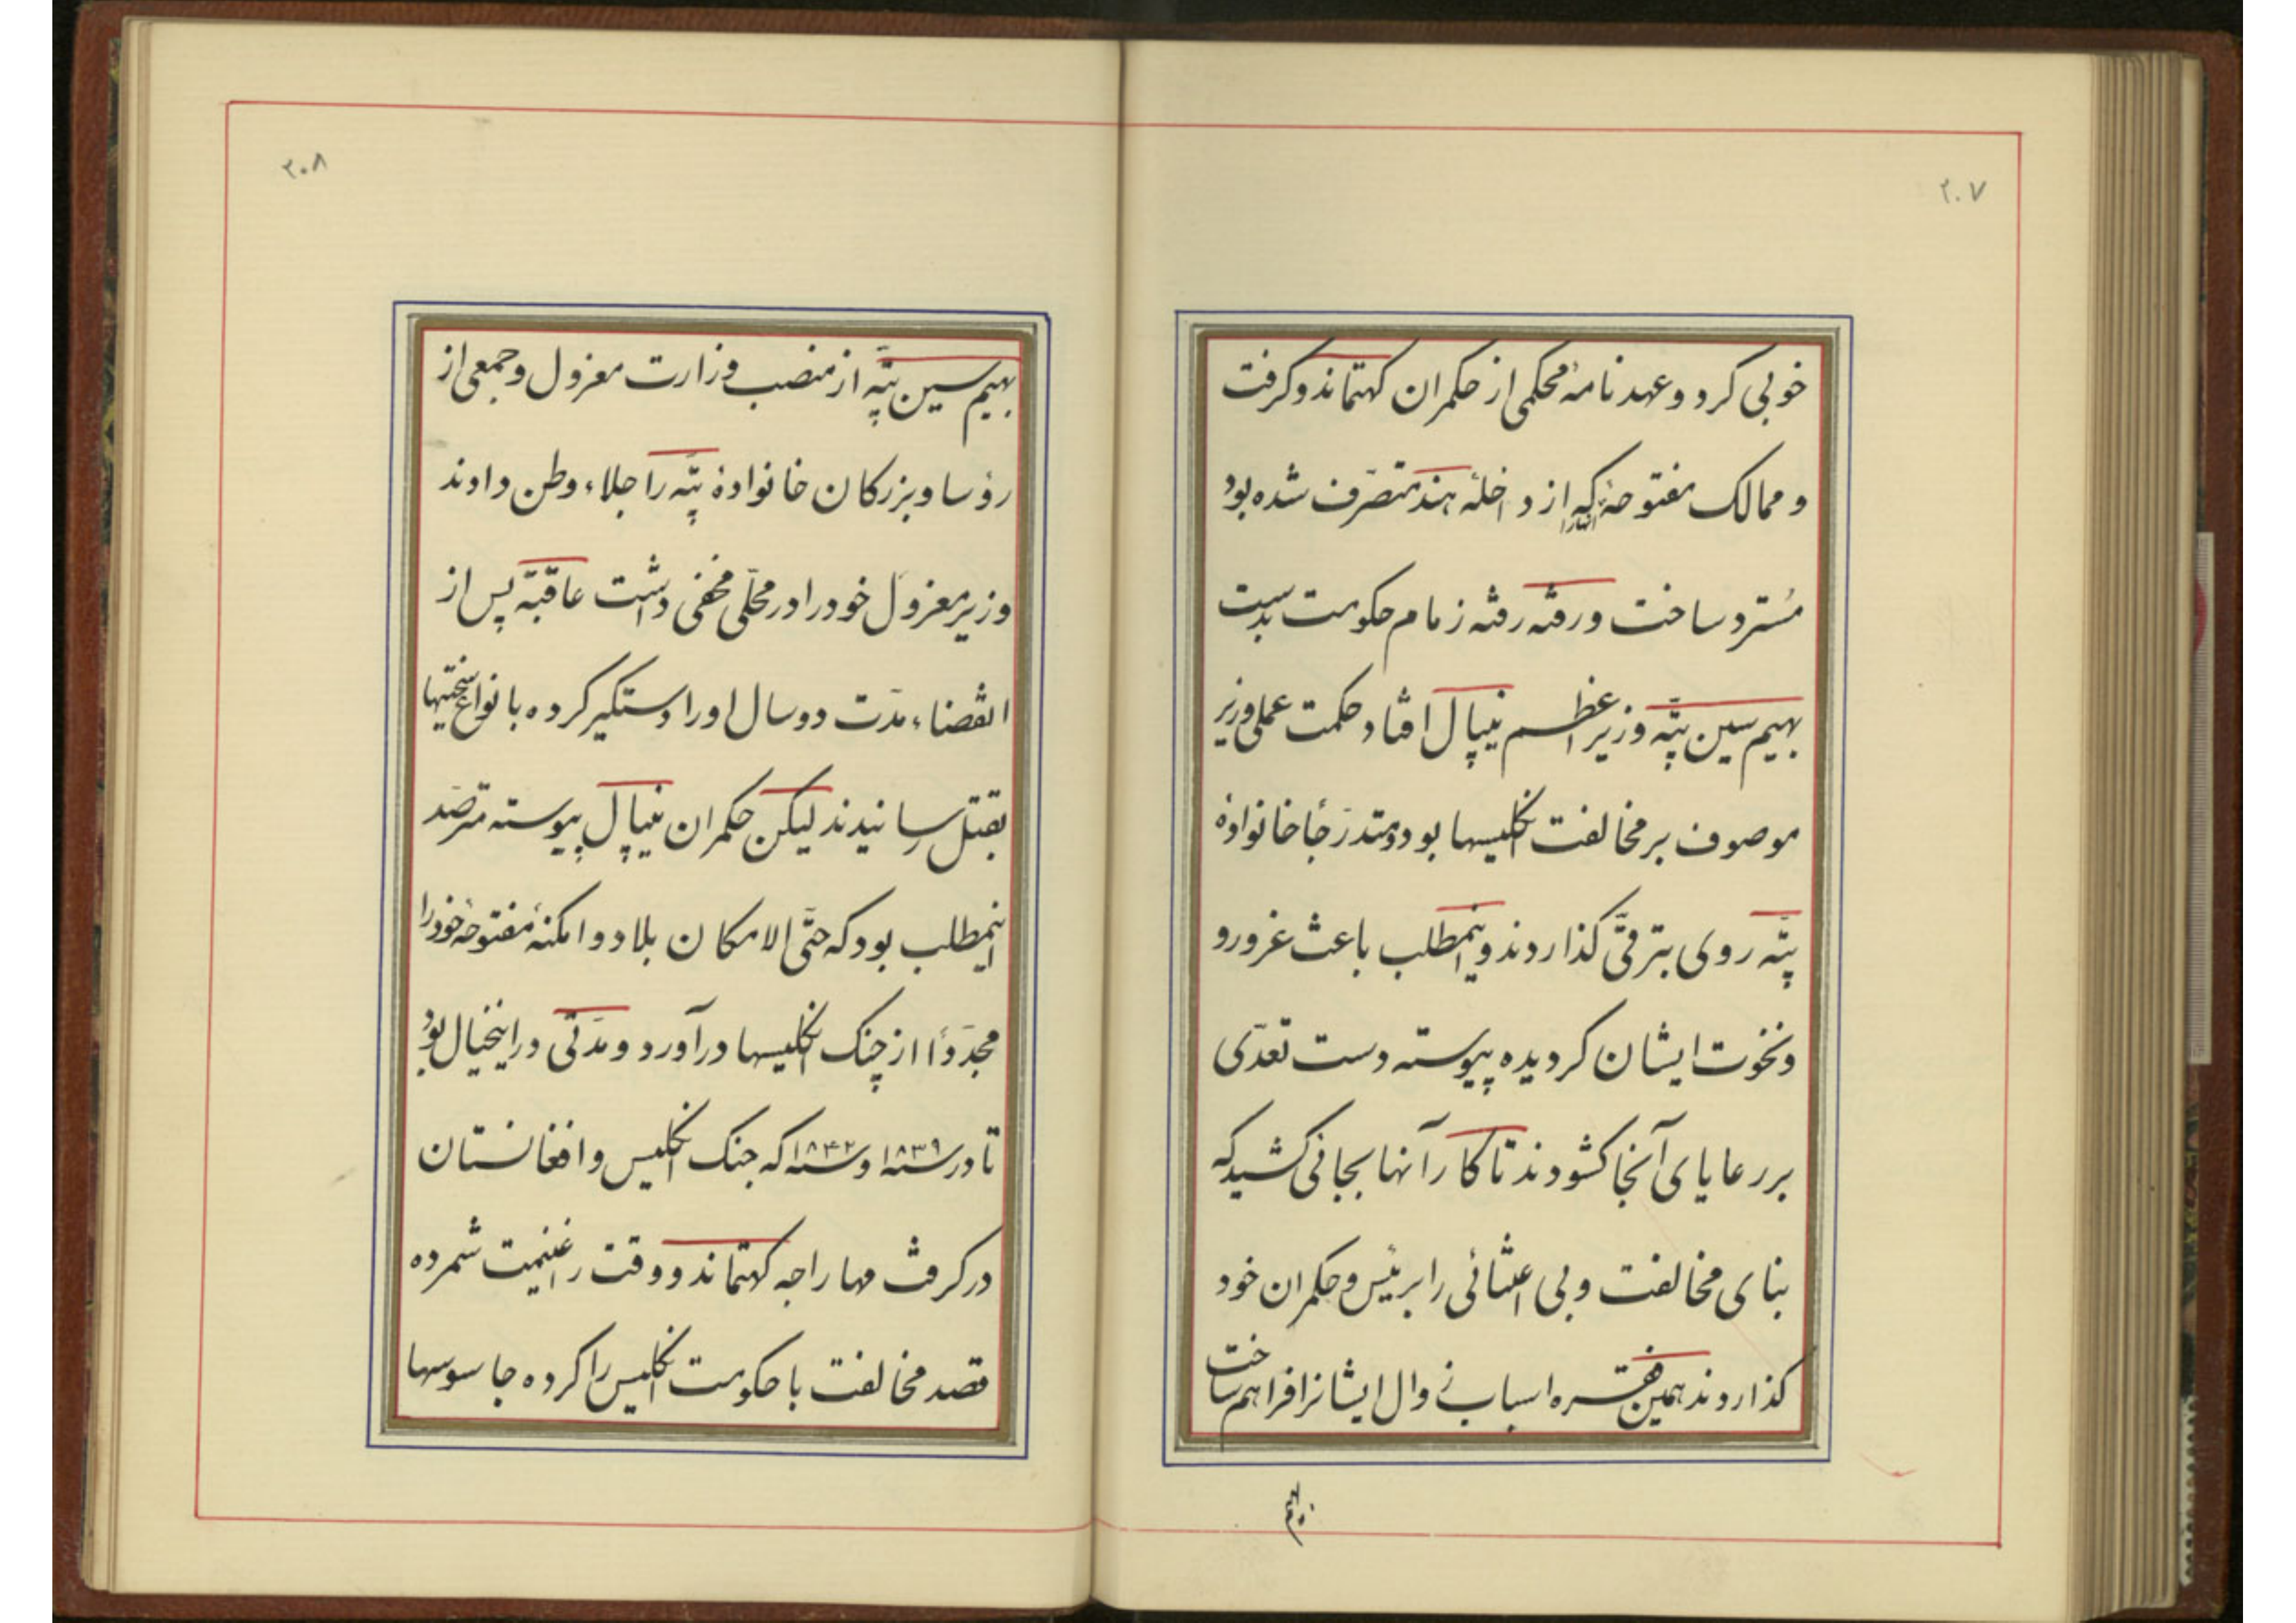 ۲۰۷
خوبی کرد و عهد نامهٔ محکمی از حکمران کهتماندو کرفت
و ممالک مفتوحهٔ که از داخلهٔ هند متصرّف شده بود
مُسترد ساخت و رفته رفته زمام حکومت بدست
بهیم سین پتّه وزیر اعظم نیپال افتاد حکمت عملی وزیر
موصوف بر مخالفت انکلیسها بود و متدرّجاً خانوادهٔ
پتّه روی بترقّی کذاردند و اینمطلب باعث غرور و
و نخوت ایشان کردیده پیوسته دست تعدّی
بر رعایای آنجا کشودند تا کار آنها بجائی کشید که
بنای مخالفت و بی اعتنائی را بر رئیس و حکمران خود
کذاردند همین فقره اسباب زوال ایشانرا فراهم ساخت
بهیم
۲۰۸
بهیم سین پتّه از منصب وزارت معزول و جمعی از
رؤسا و بزرکان خانوادهٔ پتّه را جلاء وطن دادند
وزیر معزول خود را در محلّی مخفی داشت عاقبة پس از
انقضاء مدّت دو سال او را دستکیر کرده با نواع سختیها
بقتل رسانیدند لیکن حکمران نیپال پیوسته مترصّد
اینمطلب بود که حتّی الامکان بلاد و امکنهٔ مفتوحهٔ خود را
مجدّداً از چنک انکلیسها در آورد و مدّتی در اینخیال بود
تا در سنه ۱۸۳۹ و سنه ۱۸۴۲ که جنک انکلیس و افغانستان
در کرفت مهاراجه کهتماندو وقت را غنیمت شمرده
قصد مخالفت با حکومت انکلیس را کرده جاسوسها